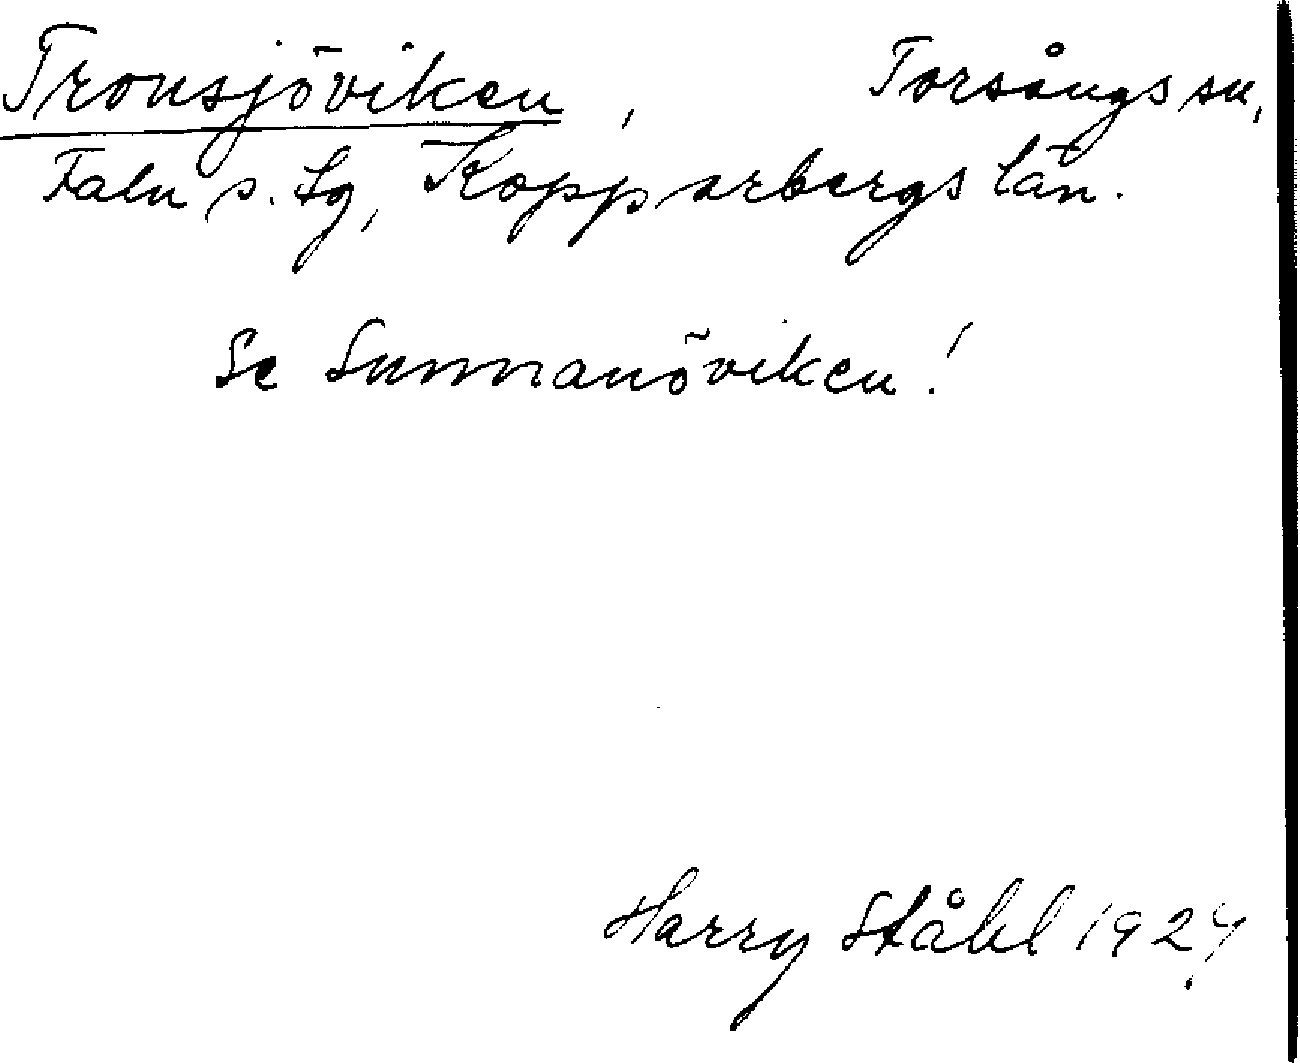 Tronsjöviken, Torsångs sn,
Falu s. Lg, Kopparbergs län.
Se Sunnanöviken!
Harry Ståhl 1927.